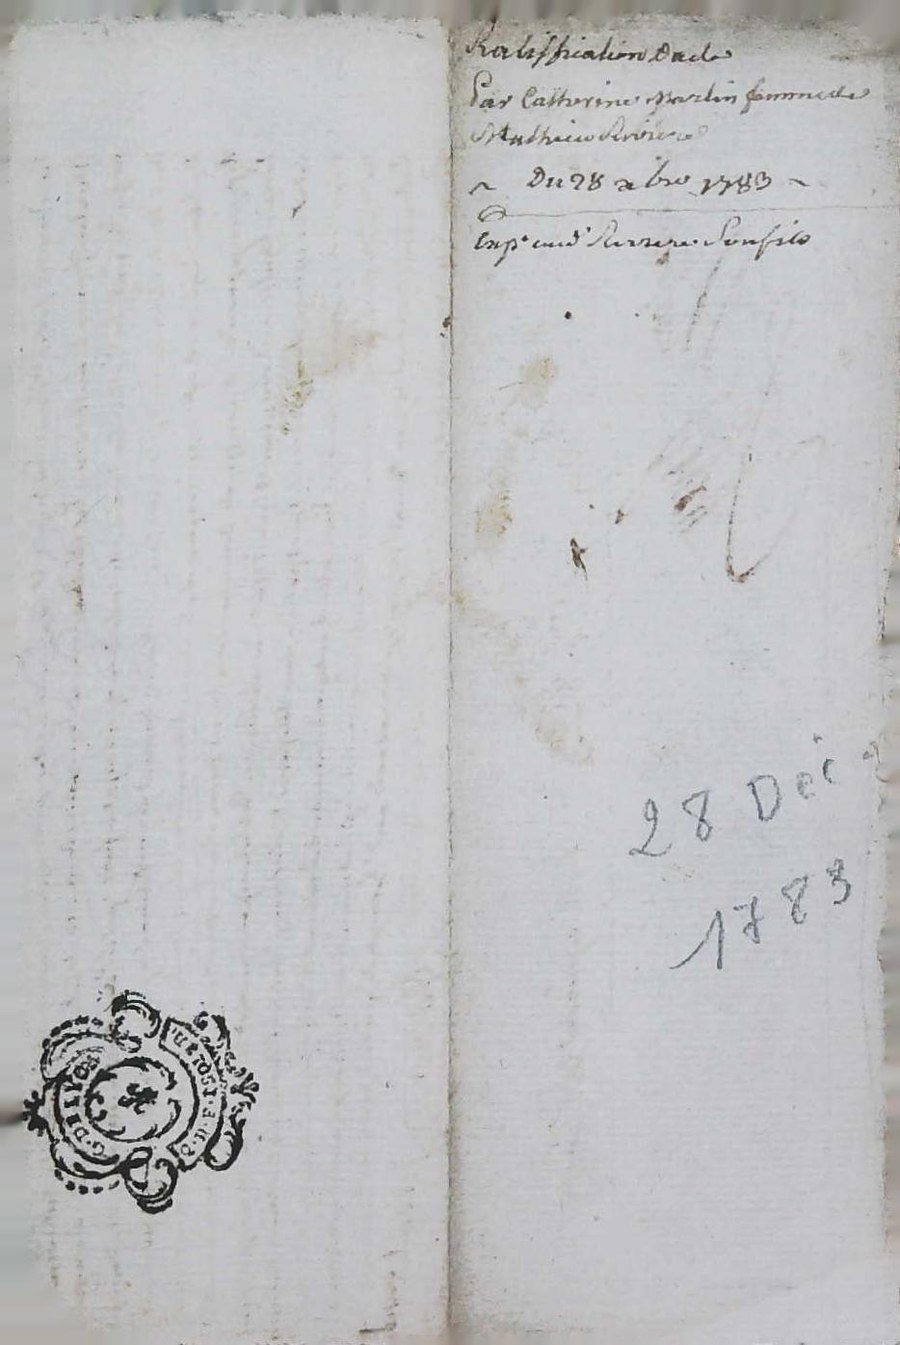 Ratiffication Dacte
Par Catherine Martin femme de
Mathieu Riviere
~ Du 28 xbre 1783 ~
Exp.e aud.t Riviere Son fils
28 Déc
1783
G. DE LYON